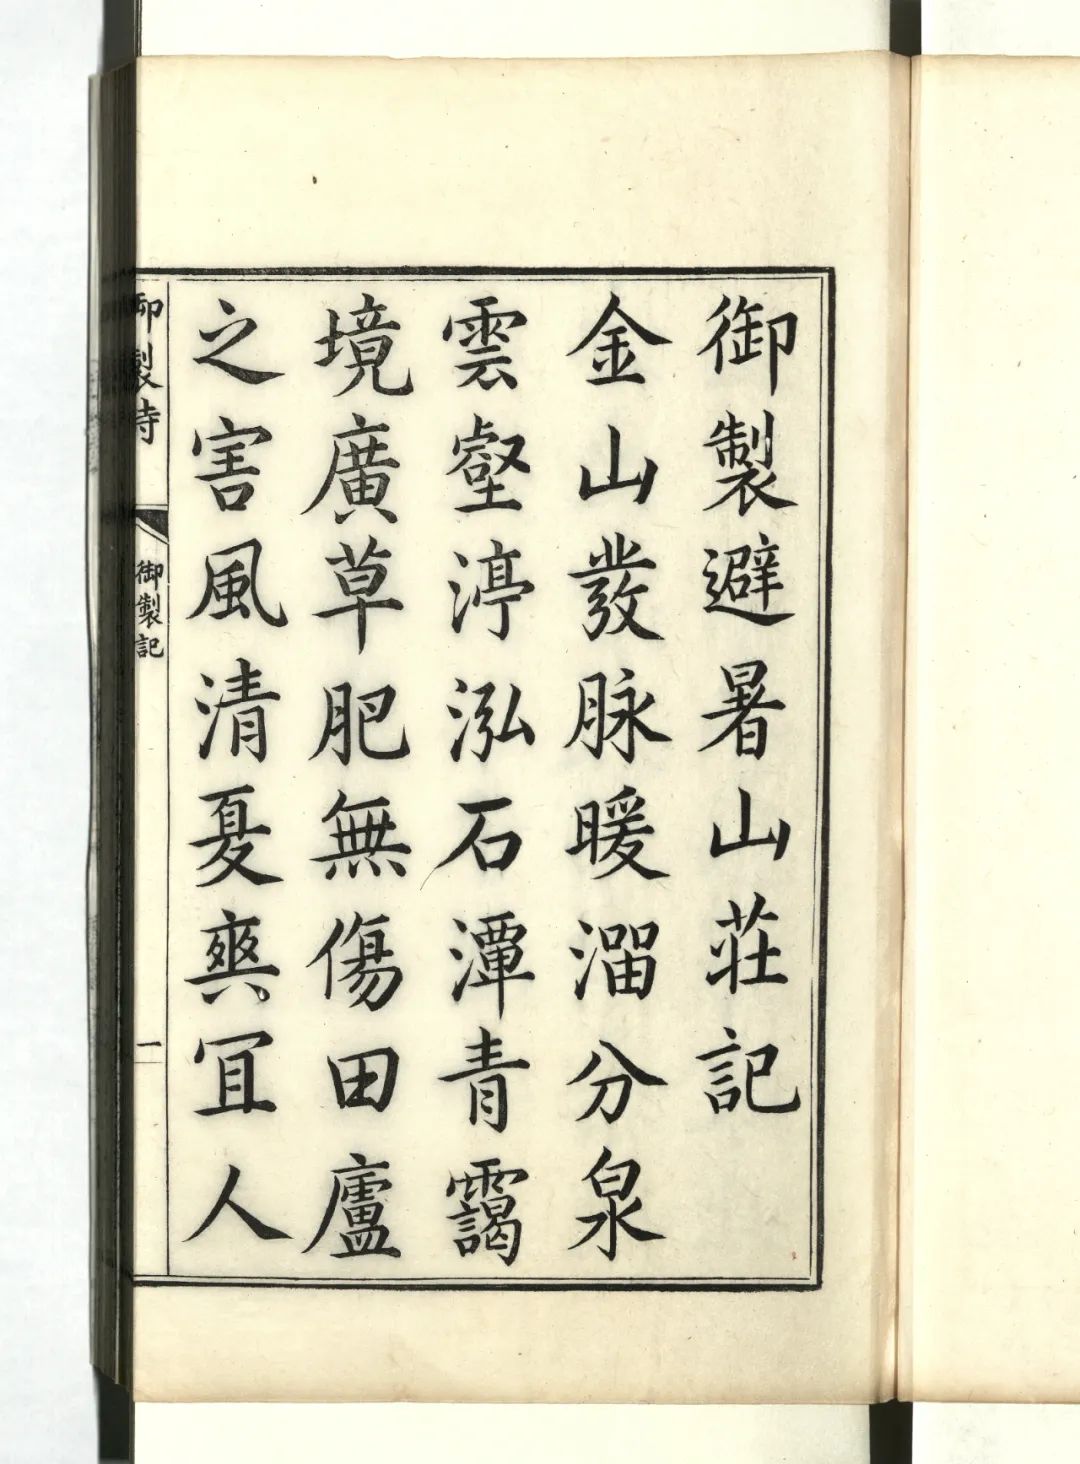 御製避暑山莊記
金山發脉暖溜分泉
雲壑渟泓石潭青靄
境廣草肥無傷田廬
之害風清夏爽宜人
御製詩
御製記
一